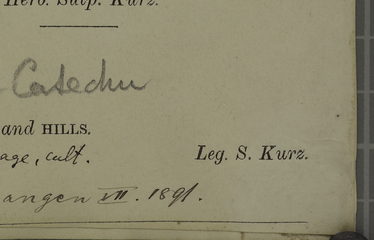 Herb. Sulp. Kurz.
Catechu
and HILLS.
age, cult.
Leg. S. Kurz.
angen VII. 1891.